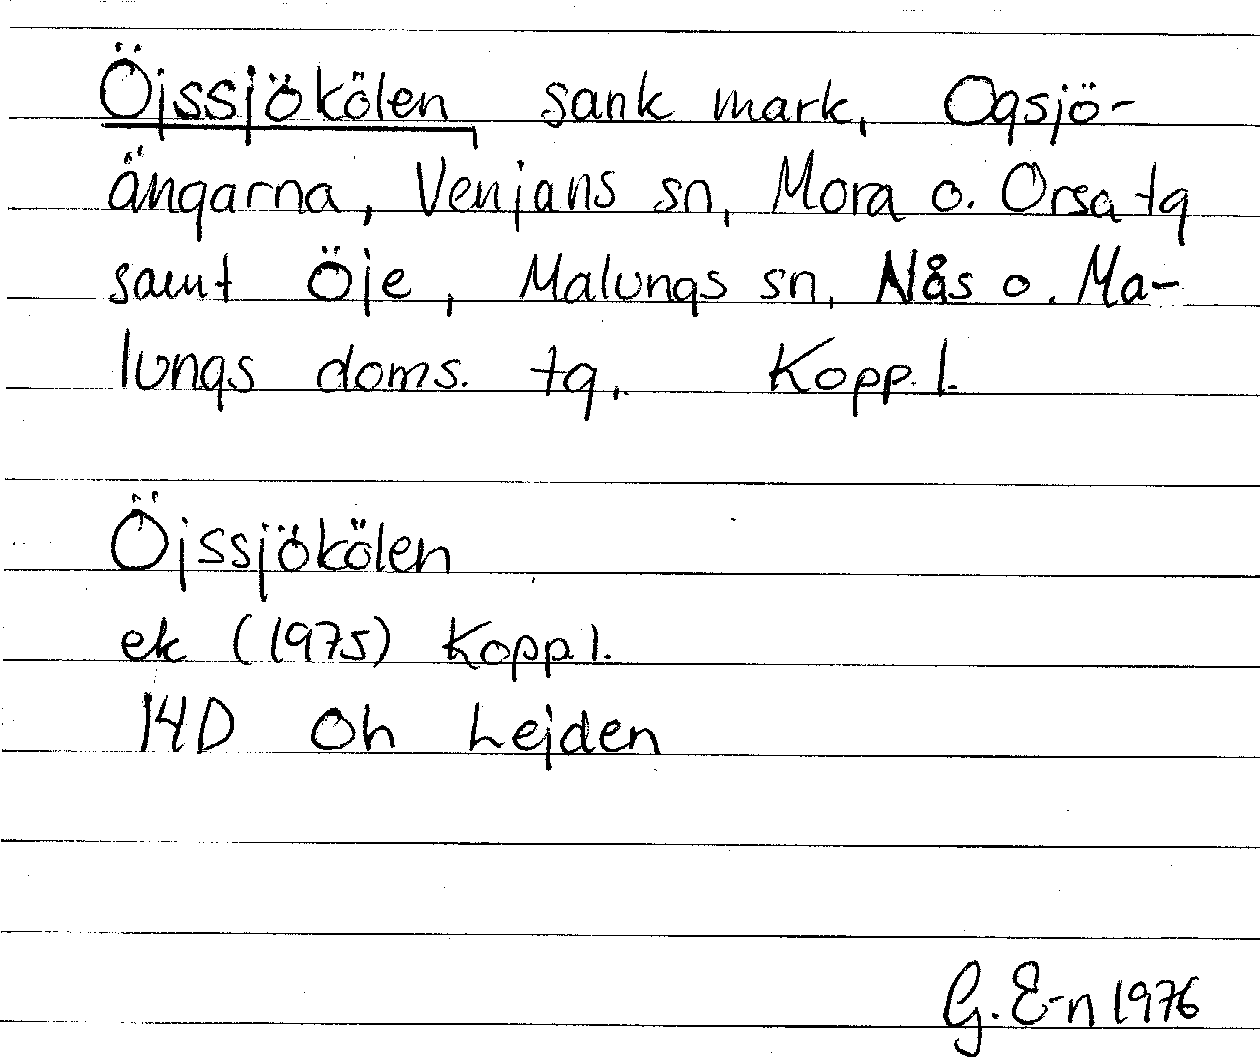 Öjssjökölen sank mark, Ogsjö-
ängarna, Venjans sn, Mora o. Orsa tg
samt Öje, Malungs sn, Nås o. Ma-
lungs doms. tg. Kopp. l.
Öjssjökölen
ek (1975) Kopp l.
14D Oh Lejden
G. E-n 1976